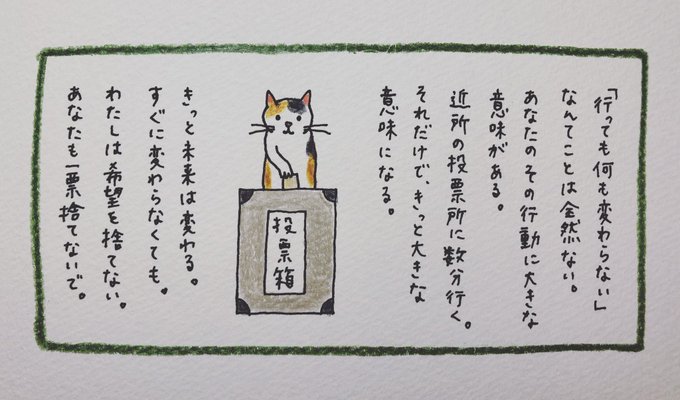 「行っても何も変わらない」
なんてことは全然ない。
あなたのその行動に大きな
意味がある。
近所の投票所に数分行く。
それだけで、きっと大きな
意味になる。
投票箱
きっと未来は変わる。
すぐに変わらなくても。
わたしは希望を捨てない。
あなたも一票捨てないで。